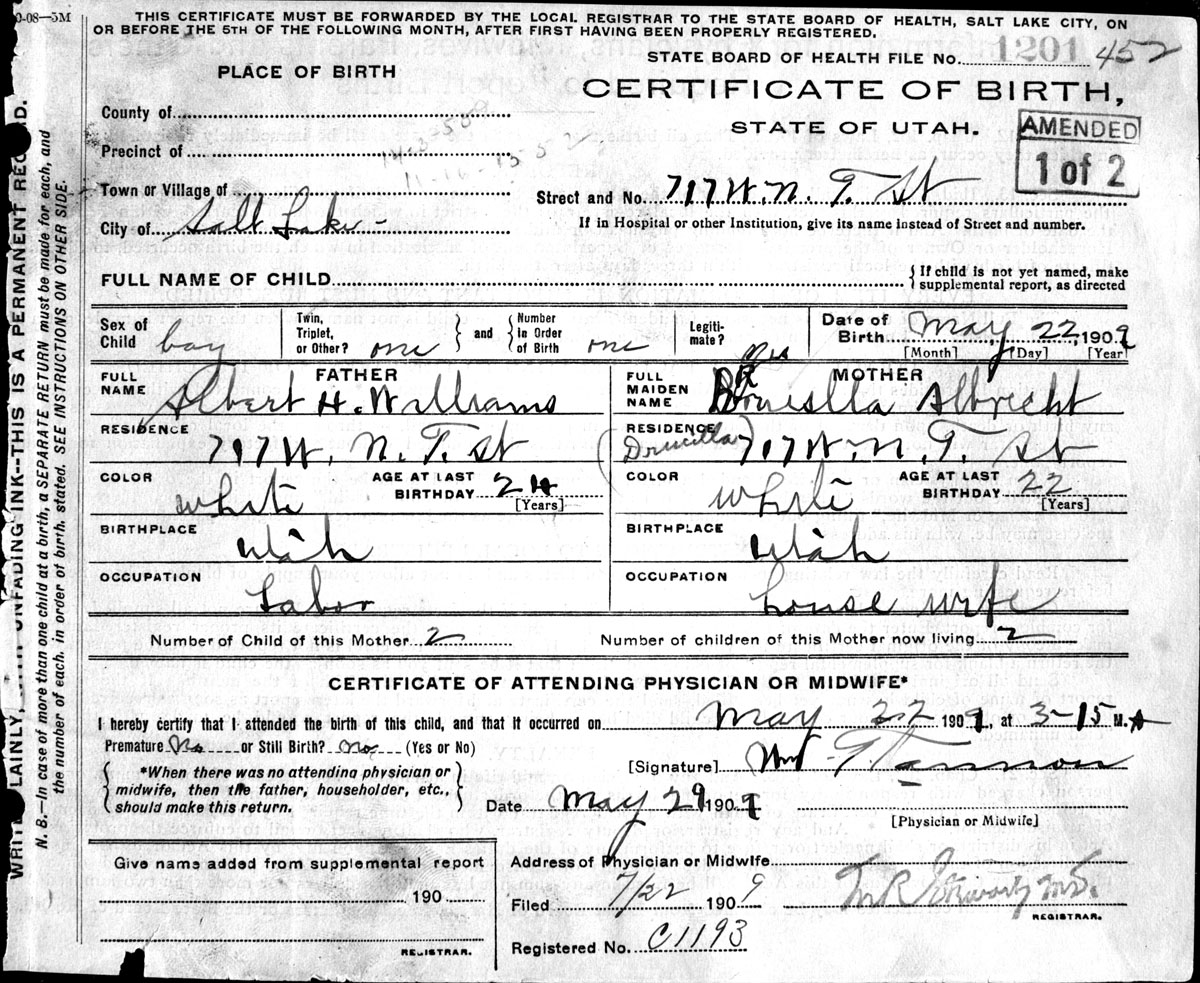 0-08—5M
THIS CERTIFICATE MUST BE FORWARDED BY THE LOCAL REGISTRAR TO THE STATE BOARD OF HEALTH, SALT LAKE CITY, ON
OR BEFORE THE 5TH OF THE FOLLOWING MONTH, AFTER FIRST HAVING BEEN PROPERLY REGISTERED.
STATE BOARD OF HEALTH FILE NO. 1201 452
PLACE OF BIRTH
CERTIFICATE OF BIRTH,
STATE OF UTAH.
AMENDED
1 of 2
County of
Precinct of
Town or Village of
City of Salt Lake
Street and No. 717 W. N. T. St
If in Hospital or other Institution, give its name instead of Street and number.
FULL NAME OF CHILD
If child is not yet named, make
supplemental report, as directed
Sex of Child boy
Twin, Triplet, or Other? one
and
Number in Order of Birth one
Legiti- mate?
Date of Birth May 22, 1909
[Month] [Day] [Year]
FATHER
FULL NAME Albert H. Williams
RESIDENCE 717 W. N. T. St
COLOR White
AGE AT LAST BIRTHDAY 24
[Years]
BIRTHPLACE Utah
OCCUPATION Labor
MOTHER
FULL MAIDEN NAME Albrecht
(Drucilla)
RESIDENCE 717 W. N. T. St
COLOR White
AGE AT LAST BIRTHDAY 22
[Years]
BIRTHPLACE Utah
OCCUPATION house wife
Number of Child of this Mother 2
Number of children of this Mother now living 2
CERTIFICATE OF ATTENDING PHYSICIAN OR MIDWIFE*
I hereby certify that I attended the birth of this child, and that it occurred on May 22 1909, at 3-15 M.
Premature No or Still Birth? No (Yes or No)
*When there was no attending physician or
midwife, then the father, householder, etc.,
should make this return.
[Signature]
Date May 29 1909
[Physician or Midwife]
Give name added from supplemental report
190
REGISTRAR.
Address of Physician or Midwife
Filed 7/22 1909
REGISTRAR.
Registered No. C1193
WRITE PLAINLY WITH UNFADING INK--THIS IS A PERMANENT RECORD.
N. B.—In case of more than one child at a birth, a SEPARATE RETURN must be made for each, and
the number of each, in order of birth, stated. SEE INSTRUCTIONS ON OTHER SIDE.